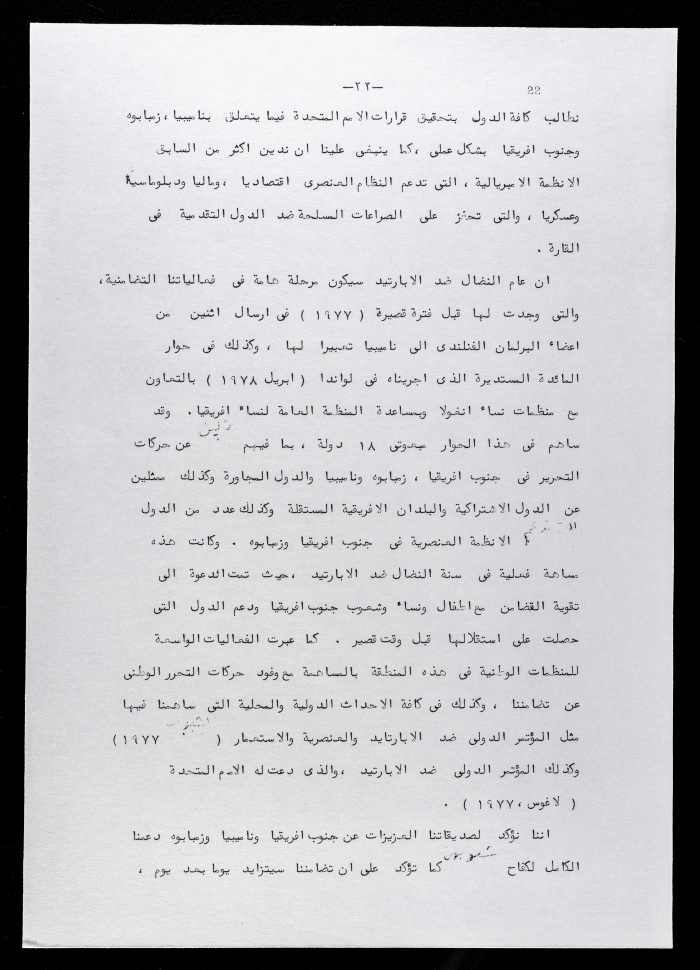 22
—٢٢—
نطالب كافة الدول بتحقيق قرارات الامم المتحدة فيما يتعلق بناميبيا ، زمبابوه
وجنوب افريقيا بشكل عملى ، كما ينبغى علينا ان ندين اكثر من السابق
الانظمة الامبريالية ، التى تدعم النظام العنصرى اقتصاديا ، وماليا ودبلوماسية
وعسكريا ، والتى تحفز على الصراعات المسلحة ضد الدول التقدمية فى
القارة .
ان عام النضال ضد الابارتيد سيكون مرحلة هامة فى فعالياتنا التضامنية ،
والتى وجدت لها قبل فترة قصيرة ( ١٩٧٧ ) فى ارسال اثنين من
اعضاء البرلمان الفنلندى الى ناميبيا تعبيرا لها ، وكذلك فى حوار
المائدة المستديرة الذى اجريناه فى لواندا ( ابريل ١٩٧٨ ) بالتعاون
مع منظمات نساء انغولا وبمساعدة المنظمة العامة لنساء افريقيا . وقد
ساهم فى هذا الحوار مبعوثى ١٨ دولة ، بما فيهم ممثلين عن حركات
التحرير فى جنوب افريقيا ، زمبابوه وناميبيا والدول المجاورة وكذلك ممثلين
عن الدول الاشتراكية والبلدان الافريقية المستقلة وكذلك عدد من الدول
الانظمة العنصرية فى جنوب افريقيا وزمبابوه . وكانت هذه
مساهة فعلية فى سنة النضال ضد الابارتيد ، حيث تمت الدعوة الى
تقوية القضامن مع اطفال ونساء وشعوب جنوب افريقيا ودعم الدول التى
حصلت على استقلالها قبل وقت قصير . كما عبرت الفعاليات الواسعة
للمنظمات الوطنية فى هذه المنطقة بالمساهمة مع وفود حركات التحرر الوطنى
عن تضامننا ، وكذلك فى كافة الاحداث الدولية والمحلية التى ساهمنا فيها
مثل المؤتمر الدولى ضد الابارتايد والعنصرية والاستعمار ( ١٩٧٧ )
وكذلك المؤتمر الدولى ضد الابارتيد ، والذى دعت له الامم المتحدة
( لاغوس ، ١٩٧٧ ) .
اننا نؤكد لصديقاتنا العزيزات عن جنوب افريقيا وناميبيا وزمبابوه دعمنا
الكامل لكفاح شعوبهن كما تؤكد على ان تضامننا سيتزايد يوما بعد يوم ،